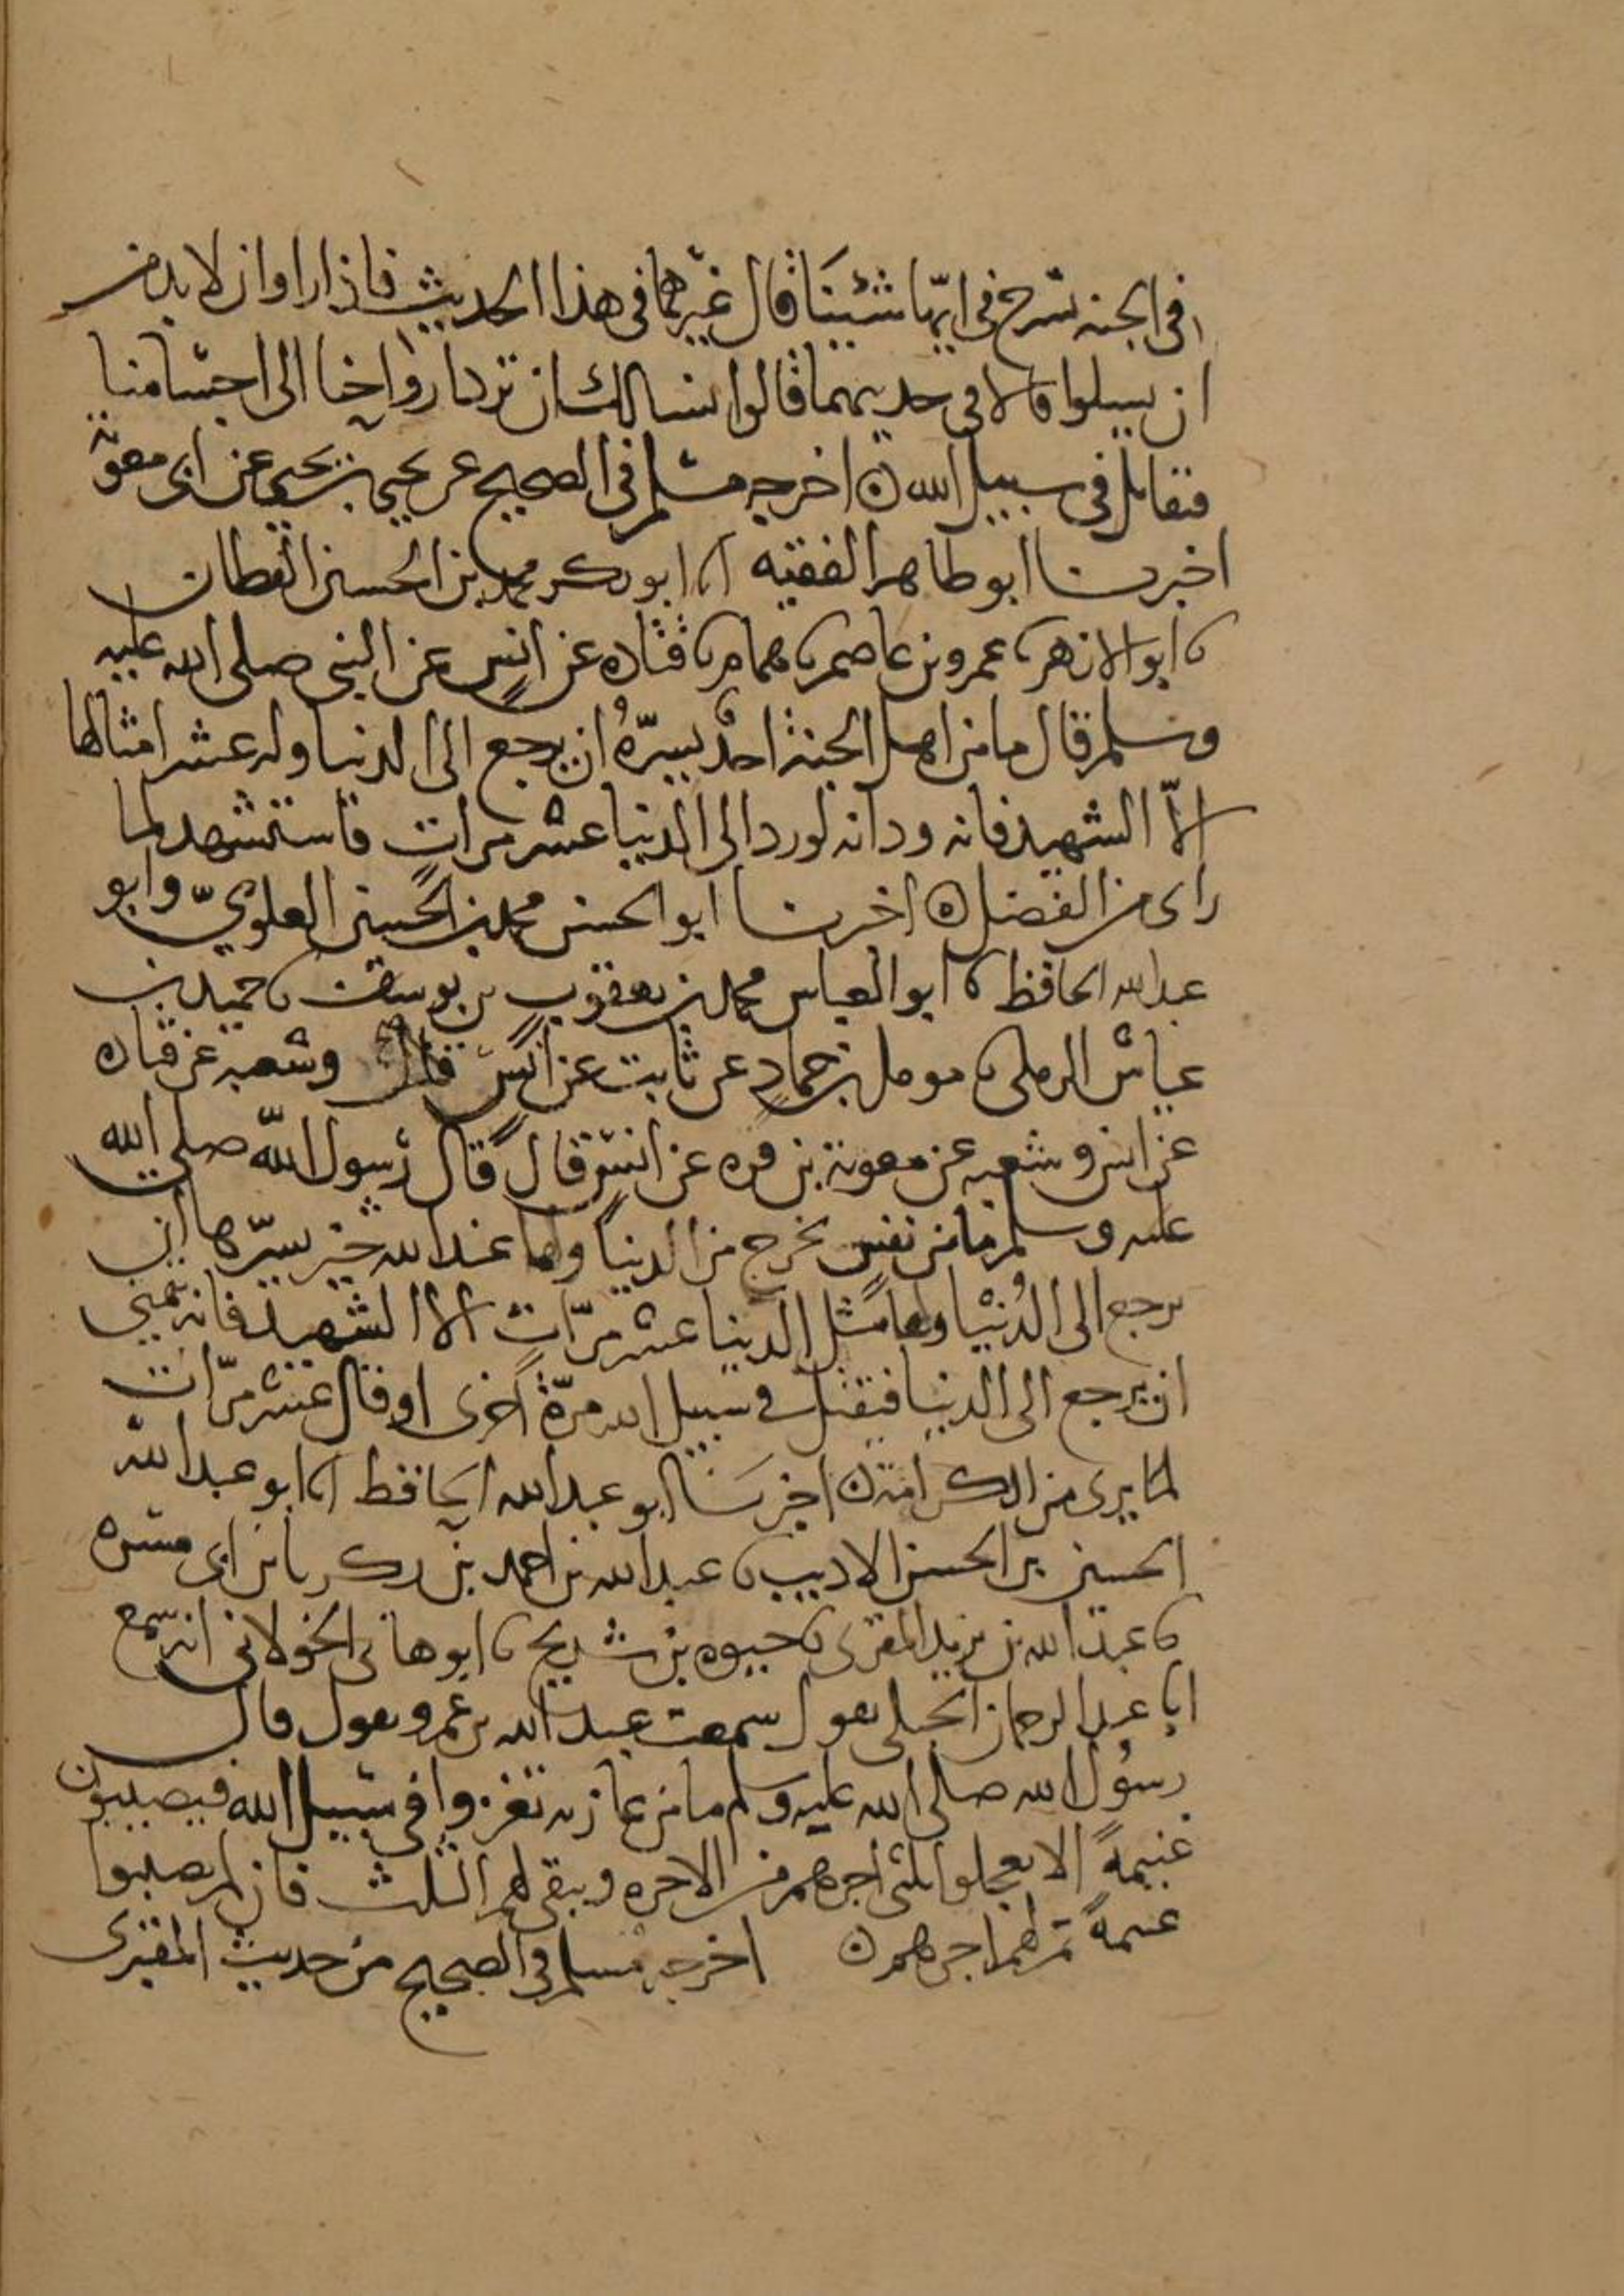 في الجنه نسرح في ايّها شئنا قال غيرهما في هذا الحديث فاذا راوا ان لا بد من
ان يسلوا قالا في حديثهما قالوا نسالك ان ترد ارواحنا الى اجسامنا
فنقاتل في سبيل الله ن اخرجه مسلم في الصحيح عن يحيى بن يحيى عن ابي معوية
اخبرنا ابو طاهر الفقيه انا ابو بكر محمد بن الحسين القطان
نا ابو الازهر نا عمرو بن عاصم نا همام نا قتاده عن انس عن النبي صلى الله عليه
وسلم قال ما من اهل الجنة احدٌ يسرّهُ ان يرجع الى الدنيا وله عشر امثالها
الاّ الشهيد فانه ود انه لو رد الى الدنيا عشر مرات فاستشهد لما
راى من الفضل ن اخبرنا ابو الحسن محمد بن الحسين العلويّ وابو
عبد الله الحافظ نا ابو العباس محمد بن يعقوب بن يوسف نا حميد بن
عياش الرملي نا مومل بن حماد عن ثابت عن انس قال وشعبه عن قتاده
عن انس وشعبه عن معوية بن قره عن انس قال قال رسول الله صلى الله
عليه وسلم ما من نفس تخرج من الدنيا ولها عند الله خير يسرّها ان
ترجع الى الدُنْيا ولها مثل الدنيا عشر مرّات الا الشهيد فانه تمنى
ان يرجع الى الدنيا فيقتل في سبيل الله مرّة اخرى او قال عشر مرّات
لما يرى من الكرامة ن اخبرَنا ابو عبد الله الحافظ انا ابو عبد الله
الحسين بن الحسن الاديب نا عبد الله بن احمد بن زكريا بن ابي مسره
نا عبد الله بن يزيد المقرى نا حيوه بن شريح نا ابو هانى الخولاني انه سمع
ابا عبد الرحمان الحبلي يقول سمعت عبد الله بن عمرو يقول قال
رسُول الله صلى الله عليه وسلم ما من غازيه تغزوا في سبيل الله فيصيبون
غنيمةً الا تعجلوا ثلثي اجرهم من الاخره ويبقى لهم الثلث فان لم يصيبوا
غنيمةً تم لهم اجرهم ن اخرجه مسلم في الصحيح من حديث المقبرى